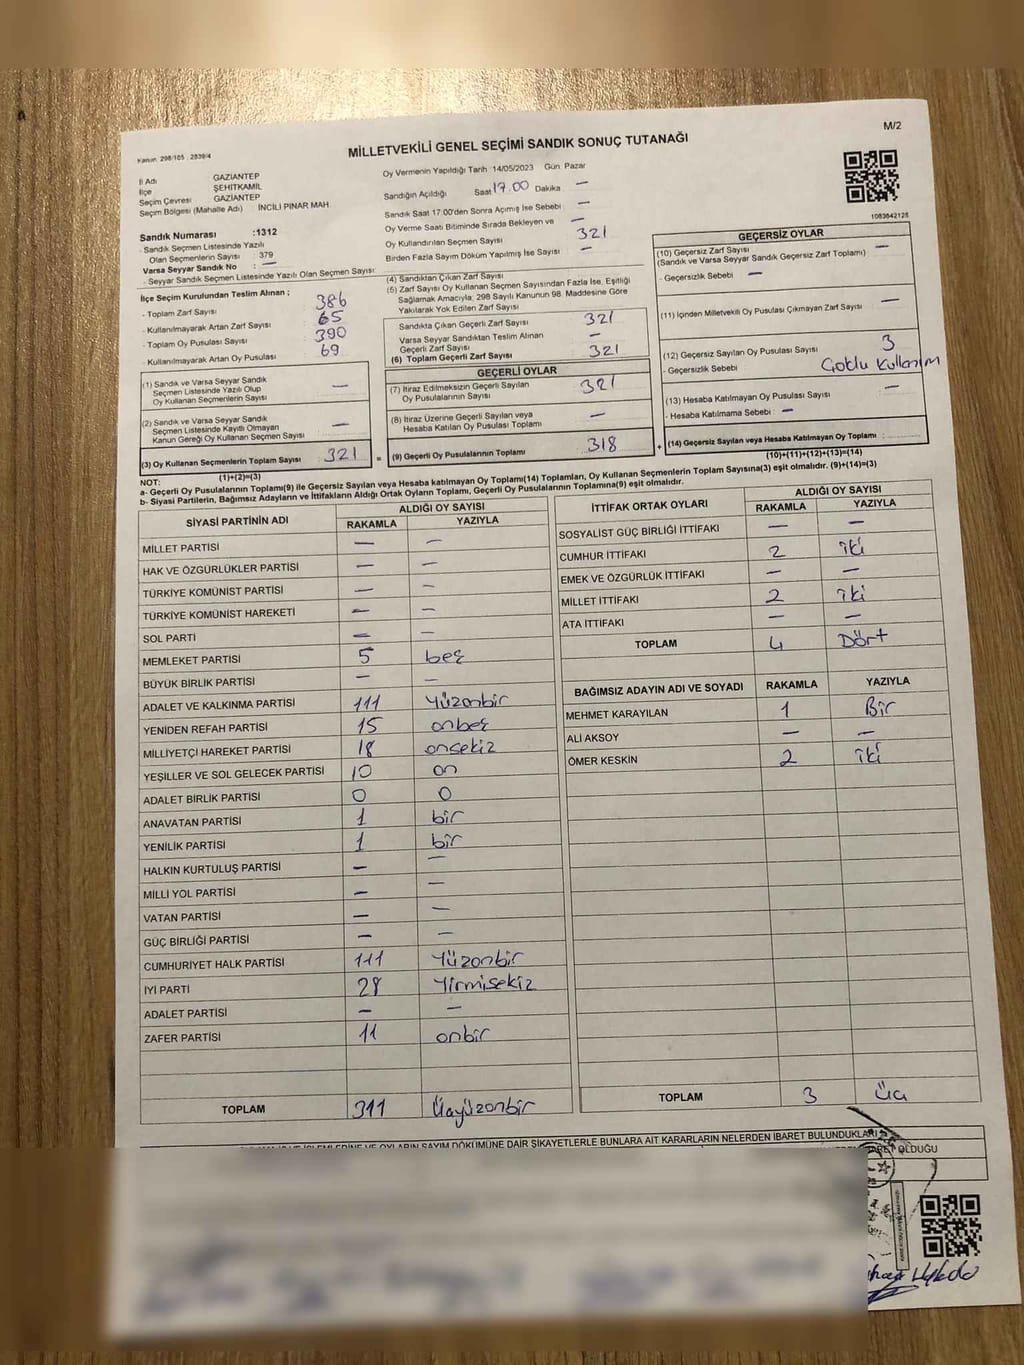 Kanun: 298/105 , 2839/4
MİLLETVEKİLİ GENEL SEÇİMİ SANDIK SONUÇ TUTANAĞI
M/2
İl Adı GAZİANTEP
İlçe ŞEHİTKAMİL
Seçim Çevresi GAZİANTEP
Seçim Bölgesi (Mahalle Adı) İNCİLİ PINAR MAH.
Sandık Numarası :1312
- Sandık Seçmen Listesinde Yazılı
Olan Seçmenlerin Sayısı : 379
Varsa Seyyar Sandık No : —
- Seyyar Sandık Seçmen Listesinde Yazılı Olan Seçmen Sayısı:
Oy Vermenin Yapıldığı Tarih 14/05/2023 Gün Pazar
Sandığın Açıldığı Saat 17.00 Dakika —
Sandık Saat 17.00'den Sonra Açılmış İse Sebebi —
Oy Verme Saati Bitiminde Sırada Bekleyen ve —
Oy Kullandırılan Seçmen Sayısı 321
Birden Fazla Sayım Döküm Yapılmış İse Sayısı —
1083642126
İlçe Seçim Kurulundan Teslim Alınan ;
- Toplam Zarf Sayısı 386
- Kullanılmayarak Artan Zarf Sayısı 65
- Toplam Oy Pusulası Sayısı 390
- Kullanılmayarak Artan Oy Pusulası 69
(1) Sandık ve Varsa Seyyar Sandık
Seçmen Listesinde Yazılı Olup
Oy Kullanan Seçmenlerin Sayısı —
(2) Sandık ve Varsa Seyyar Sandık
Seçmen Listesinde Kayıtlı Olmayan
Kanun Gereği Oy Kullanan Seçmen Sayısı —
(3) Oy Kullanan Seçmenlerin Toplam Sayısı 321 =
(1)+(2)=(3)
(4) Sandıktan Çıkan Zarf Sayısı
(5) Zarf Sayısı Oy Kullanan Seçmen Sayısından Fazla İse, Eşitliği
Sağlamak Amacıyla; 298 Sayılı Kanunun 98. Maddesine Göre
Yakılarak Yok Edilen Zarf Sayısı
Sandıkta Çıkan Geçerli Zarf Sayısı 321
Varsa Seyyar Sandıktan Teslim Alınan
Geçerli Zarf Sayısı —
(6) Toplam Geçerli Zarf Sayısı 321
GEÇERLİ OYLAR
(7) İtiraz Edilmeksizin Geçerli Sayılan
Oy Pusulalarının Sayısı 321
(8) İtiraz Üzerine Geçerli Sayılan veya
Hesaba Katılan Oy Pusulası Toplamı —
(9) Geçerli Oy Pusulalarının Toplamı 318 +
GEÇERSİZ OYLAR
(10) Geçersiz Zarf Sayısı —
(Sandık ve Varsa Seyyar Sandık Geçersiz Zarf Toplamı)
- Geçersizlik Sebebi —
(11) İçinden Milletvekili Oy Pusulası Çıkmayan Zarf Sayısı —
(12) Geçersiz Sayılan Oy Pusulası Sayısı 3
- Geçersizlik Sebebi Çoklu Kullanım
(13) Hesaba Katılmayan Oy Pusulası Sayısı —
- Hesaba Katılmama Sebebi : —
(14) Geçersiz Sayılan veya Hesaba Katılmayan Oy Toplamı :
(10)+(11)+(12)+(13)=(14)
NOT:
a- Geçerli Oy Pusulalarının Toplamı(9) ile Geçersiz Sayılan veya Hesaba katılmayan Oy Toplamı(14) Toplamları, Oy Kullanan Seçmenlerin Toplam Sayısına(3) eşit olmalıdır. (9)+(14)=(3)
b- Siyasi Partilerin, Bağımsız Adayların ve İttifakların Aldığı Ortak Oyların Toplamı, Geçerli Oy Pusulalarının Toplamına(9) eşit olmalıdır.
SİYASİ PARTİNİN ADI
ALDIĞI OY SAYISI
RAKAMLA YAZIYLA
MİLLET PARTİSİ — —
HAK VE ÖZGÜRLÜKLER PARTİSİ — —
TÜRKİYE KOMÜNİST PARTİSİ — —
TÜRKİYE KOMÜNİST HAREKETİ — —
SOL PARTİ — —
MEMLEKET PARTİSİ 5 beş
BÜYÜK BİRLİK PARTİSİ — —
ADALET VE KALKINMA PARTİSİ 111 Yüzonbir
YENİDEN REFAH PARTİSİ 15 onbeş
MİLLİYETÇİ HAREKET PARTİSİ 18 onsekiz
YEŞİLLER VE SOL GELECEK PARTİSİ 10 on
ADALET BİRLİK PARTİSİ 0 0
ANAVATAN PARTİSİ 1 bir
YENİLİK PARTİSİ 1 bir
HALKIN KURTULUŞ PARTİSİ — —
MİLLİ YOL PARTİSİ — —
VATAN PARTİSİ — —
GÜÇ BİRLİĞİ PARTİSİ — —
CUMHURİYET HALK PARTİSİ 111 Yüzonbir
İYİ PARTİ 28 Yirmisekiz
ADALET PARTİSİ — —
ZAFER PARTİSİ 11 onbir
TOPLAM 311 Üçyüzonbir
İTTİFAK ORTAK OYLARI
ALDIĞI OY SAYISI
RAKAMLA YAZIYLA
SOSYALİST GÜÇ BİRLİĞİ İTTİFAKI — —
CUMHUR İTTİFAKI 2 iki
EMEK VE ÖZGÜRLÜK İTTİFAKI — —
MİLLET İTTİFAKI 2 iki
ATA İTTİFAKI — —
TOPLAM 4 Dört
BAĞIMSIZ ADAYIN ADI VE SOYADI RAKAMLA YAZIYLA
MEHMET KARAYILAN 1 Bir
ALİ AKSOY — —
ÖMER KESKİN 2 iki
TOPLAM 3 Üç
İŞLEMLERİNE VE OYLARIN SAYIM DÖKÜMÜNE DAİR ŞİKAYETLERLE BUNLARA AİT KARARLARIN NELERDEN İBARET BULUNDUKLARI
OLDUĞU